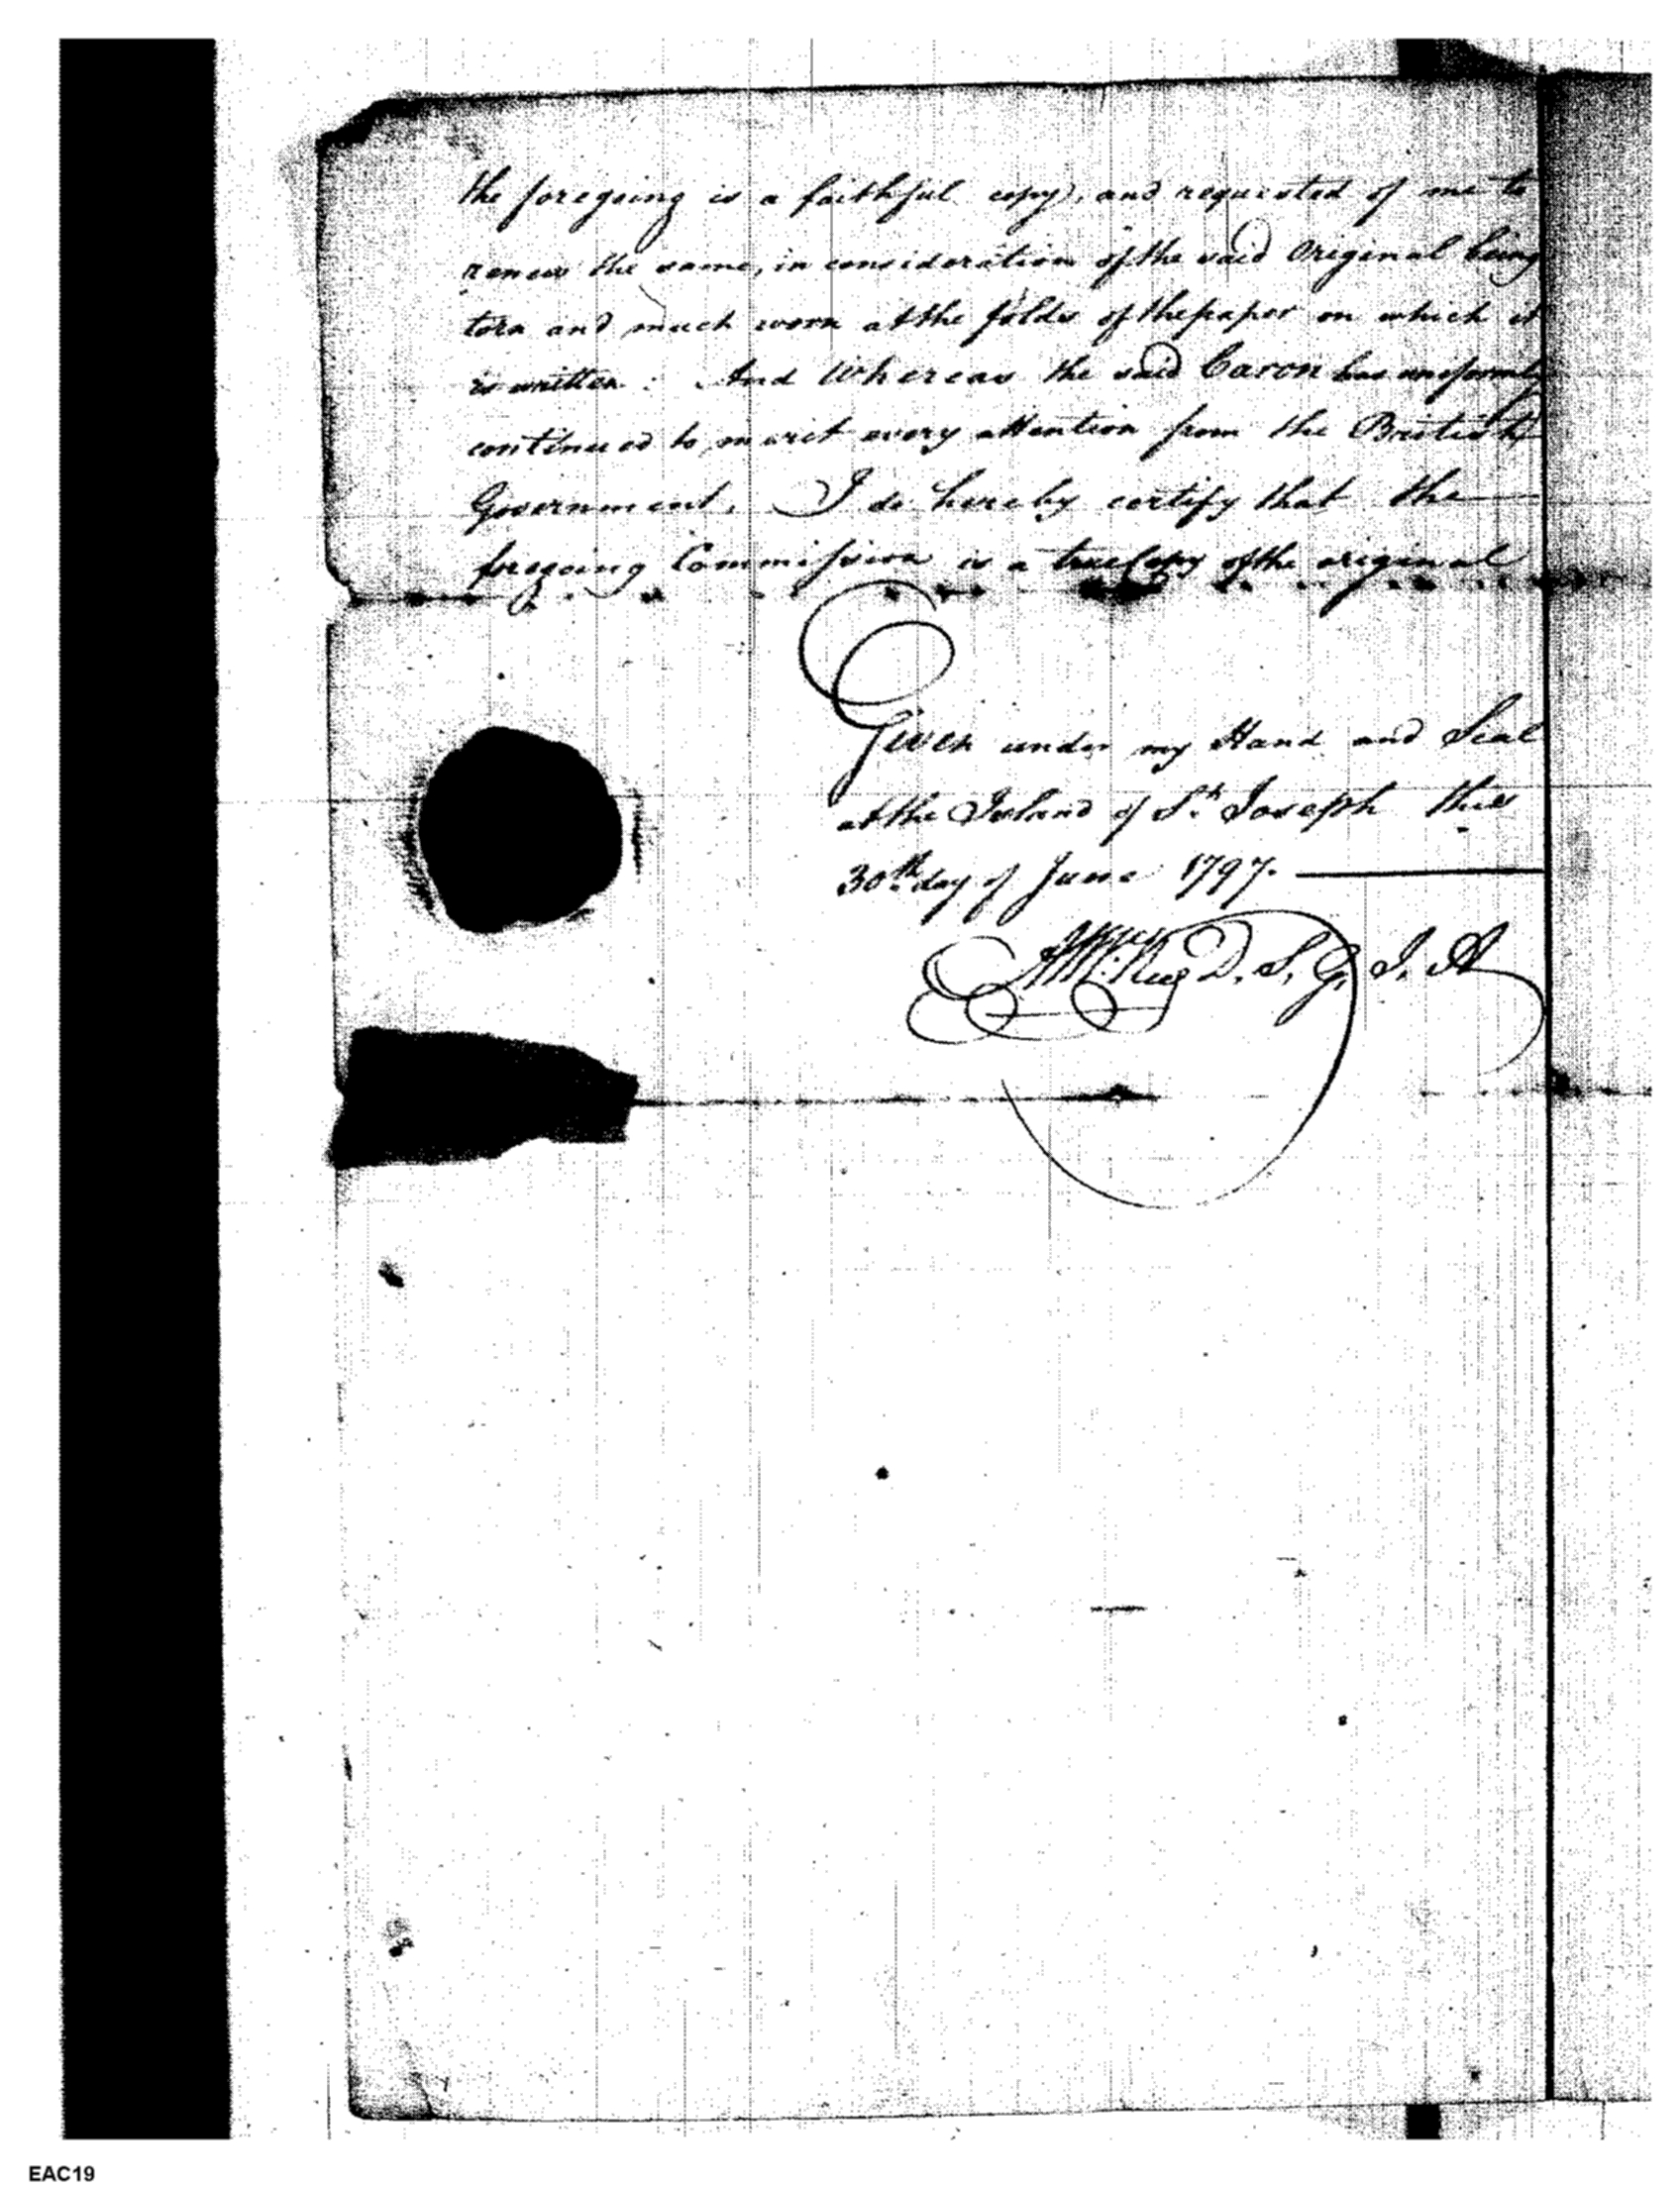 the foregoing is a faithful copy, and requested of me to
renew the same, in consideration of the said Original being
torn and much worn at the folds of the paper on which it
is written : And Whereas the said Caron has uniformly
continued to merit every attention from the British
Government, I do hereby certify that the
foregoing Commission is a true Copy of the original
Given under my Hand and Seal
at the Island of St. Joseph this
30th day of June 1797.
A McKee D. S. G. I. A
EAC19